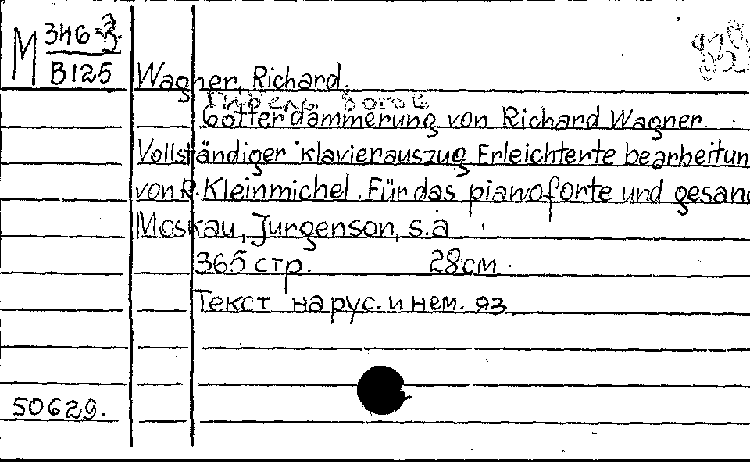 М 346-3
В125
Wagner, Richard.
Гибель богов
Götterdämmerung von Richard Wagner
Vollständiger klavierauszug Erleichterte bearbeitun
von R. Kleinmichel. Für das pianoforte und gesan
Moskau, Jurgenson, s.a
365 стр. 28 см.
Текст на рус. и нем. яз.
50629.